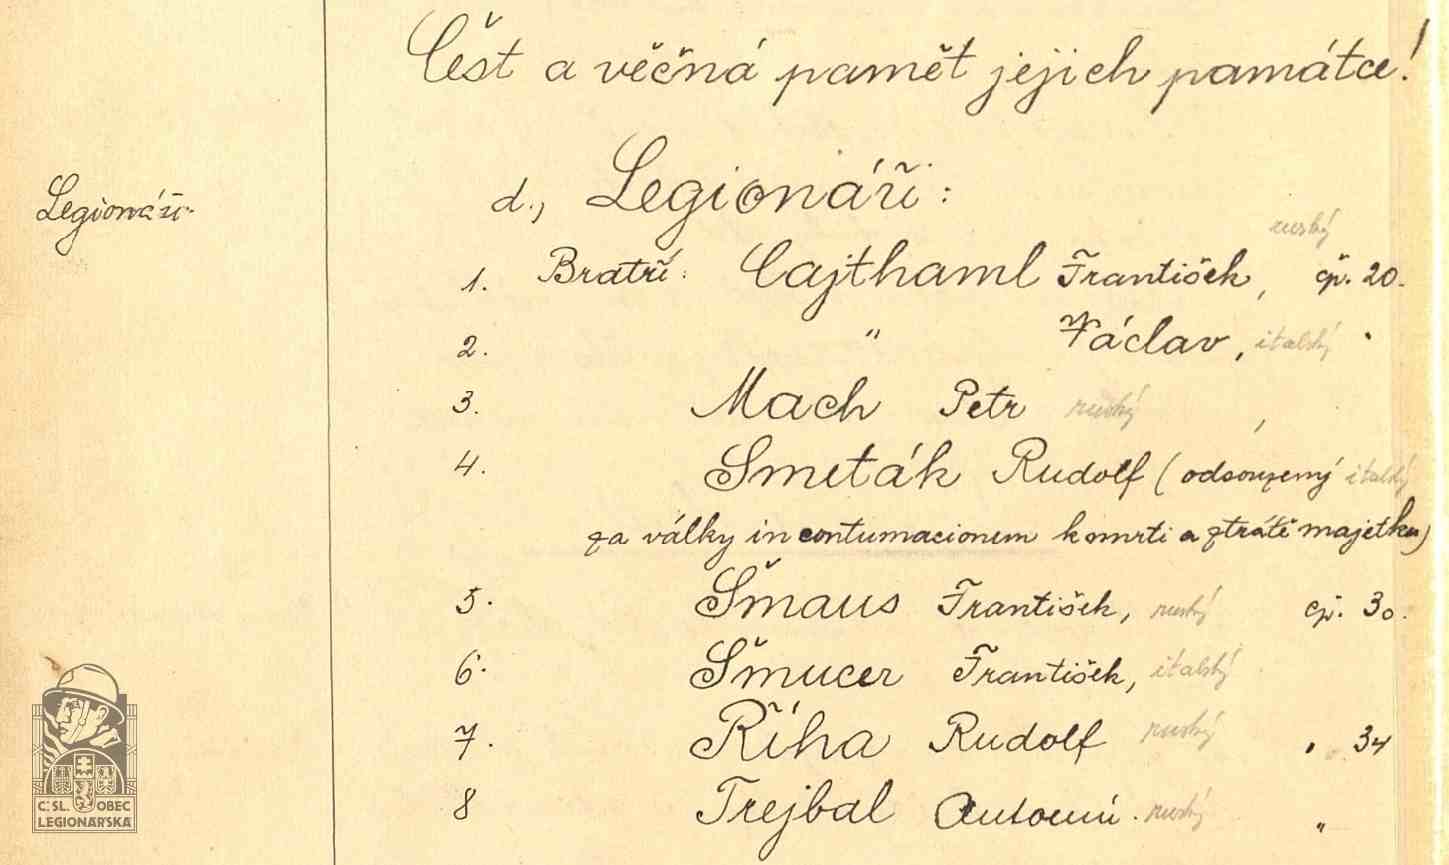 Čest a věčná pamět jejich památce!
Legionáři.
d., Legionáři:
ruský
1. Bratří: Cajthaml František, čp. 20.
2. " Václav, italský "
3. Mach Petr ruský "
4. Smeták Rudolf (odsouzený italský
za války in contumacionem k smrti a ztrátě majetku)
5. Šmaus František, ruský čp. 30.
6. Šmucer František, italský
7. Říha Rudolf ruský " 34
8 Trejbal Antonín. ruský "
Č:SL. OBEC
LEGIONÁŘSKÁ